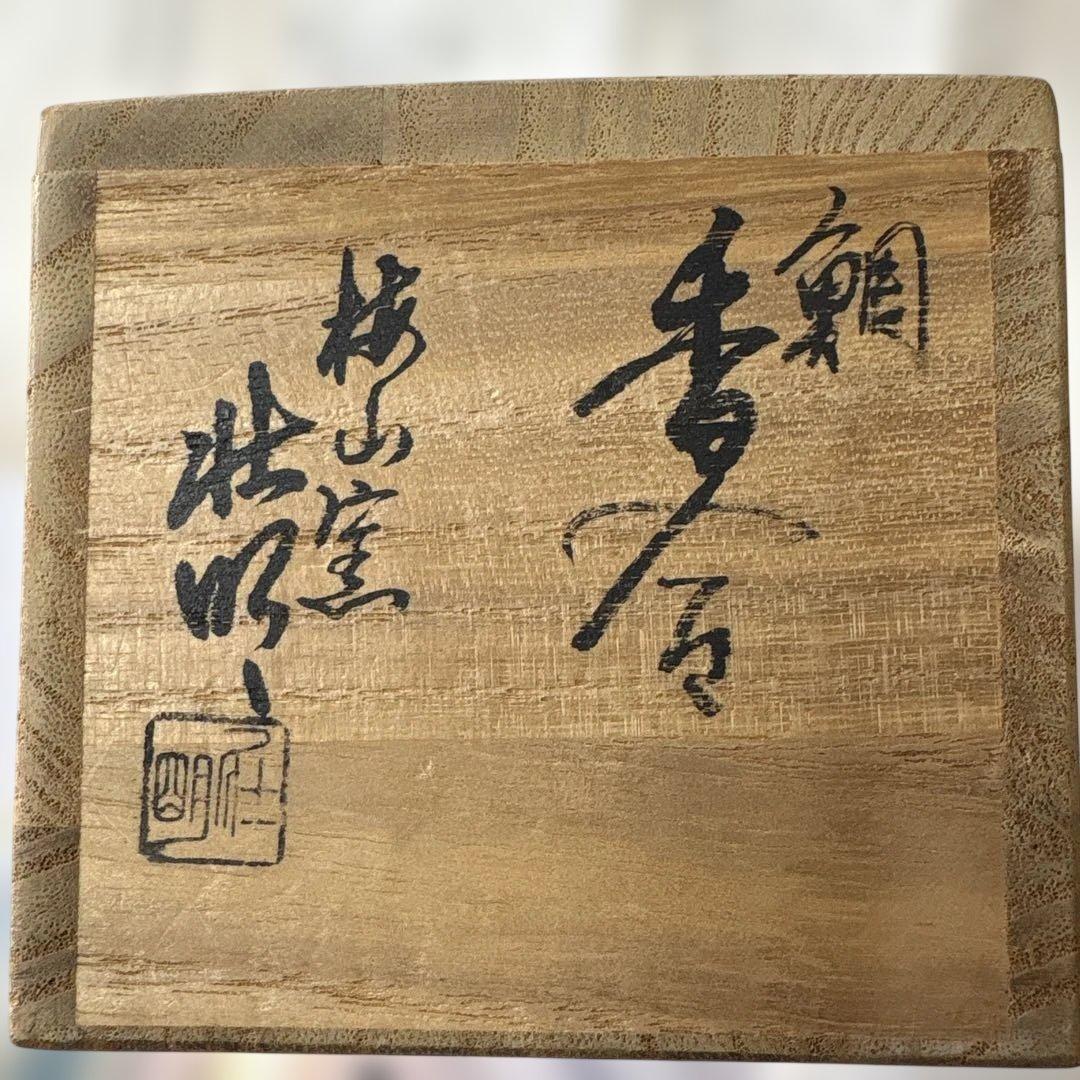 鯛
香合
梅山窯
壮明
壮明